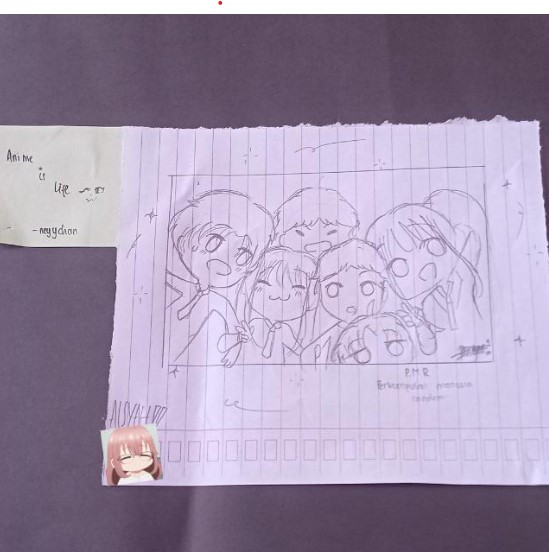 Anime
is
life
-neyychan
P.M.R
Perkumpulan manusia
random